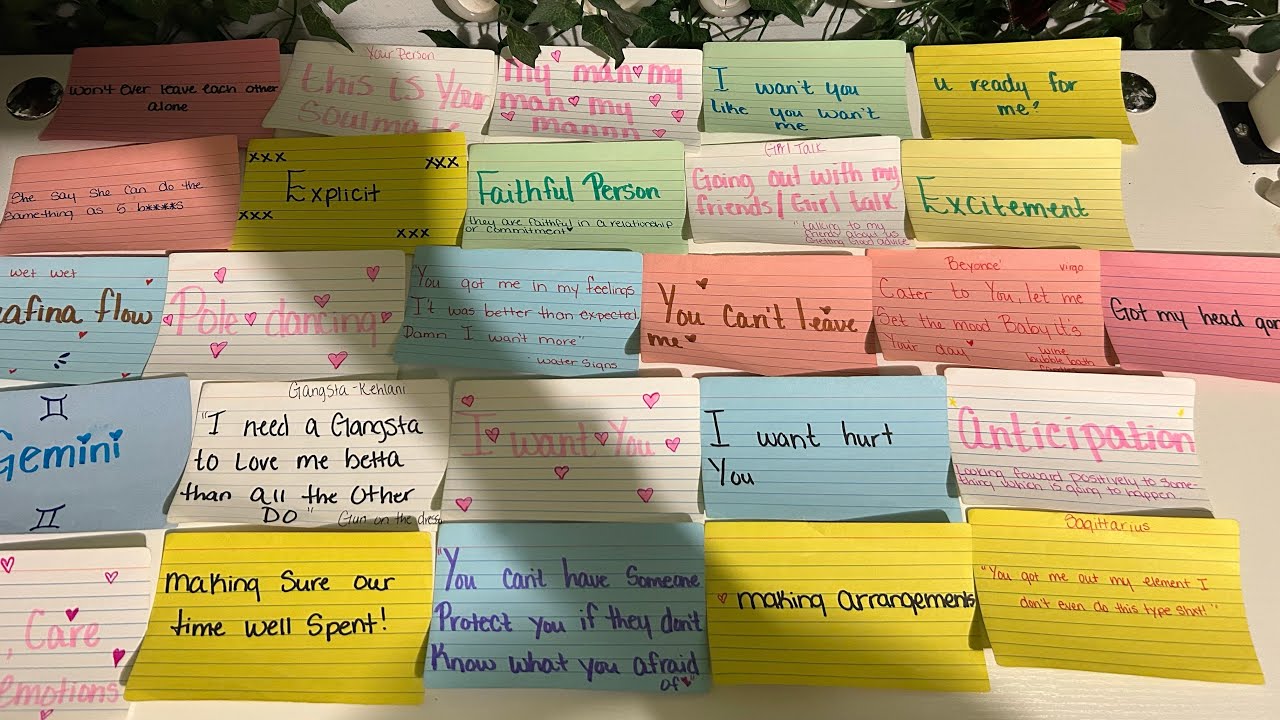 won't ever leave each other
alone
Your Person
this is your
Soulmate
my man my
man my
mannn
I wan't you
like you wan't
me
u ready for
me?
She say she can do the
samething as 5 b****s
xxx
xxx
Explicit
xxx
xxx
Faithful Person
they are faithful in a relationship
or commitment
Girl Talk
Going out with my
friends/Girl talk
"talking to my
friends about us
Getting Good advice
Excitement
wet wet
afina flow
Pole dancing
"You got me in my feelings
It was better than expected
Damn I wan't more"
water signs
You can't leave
me
Beyonce' virgo
Cater to You, let me
Set the mood Baby it's
Your day
wine
bubble bath
Got my head gon
Gemini
Gangsta - Kehlani
"I need a Gangsta
to Love me betta
than all the Other
DO"
Gun on the dress
I want You
I want hurt
You
Anticipation
Looking foward positively to some-
thing which is going to happen.
, Care
emotions
making Sure our
time well Spent!
"You can't have Someone
Protect you if they don't
Know what you afraid
of
making arrangements
Sagittarius
"You got me out my element I
don't even do this type shxt!"